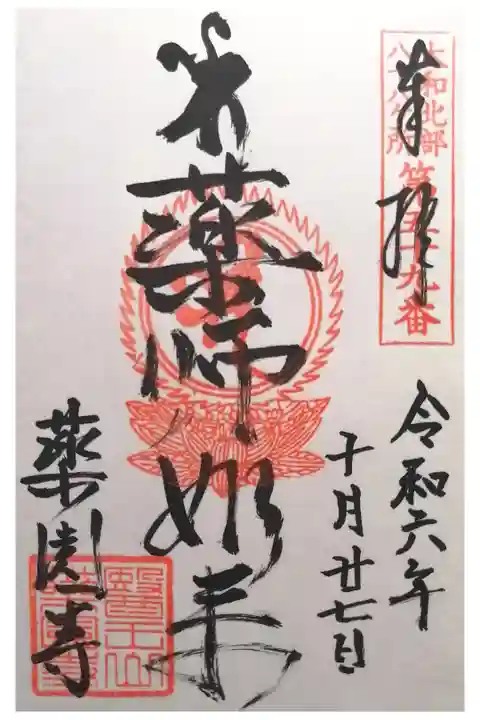 奉拝
大和北部
八十八ヶ所
第五十九番
令和六年
十月廿七日
薬師如来
薬園寺
醫王山